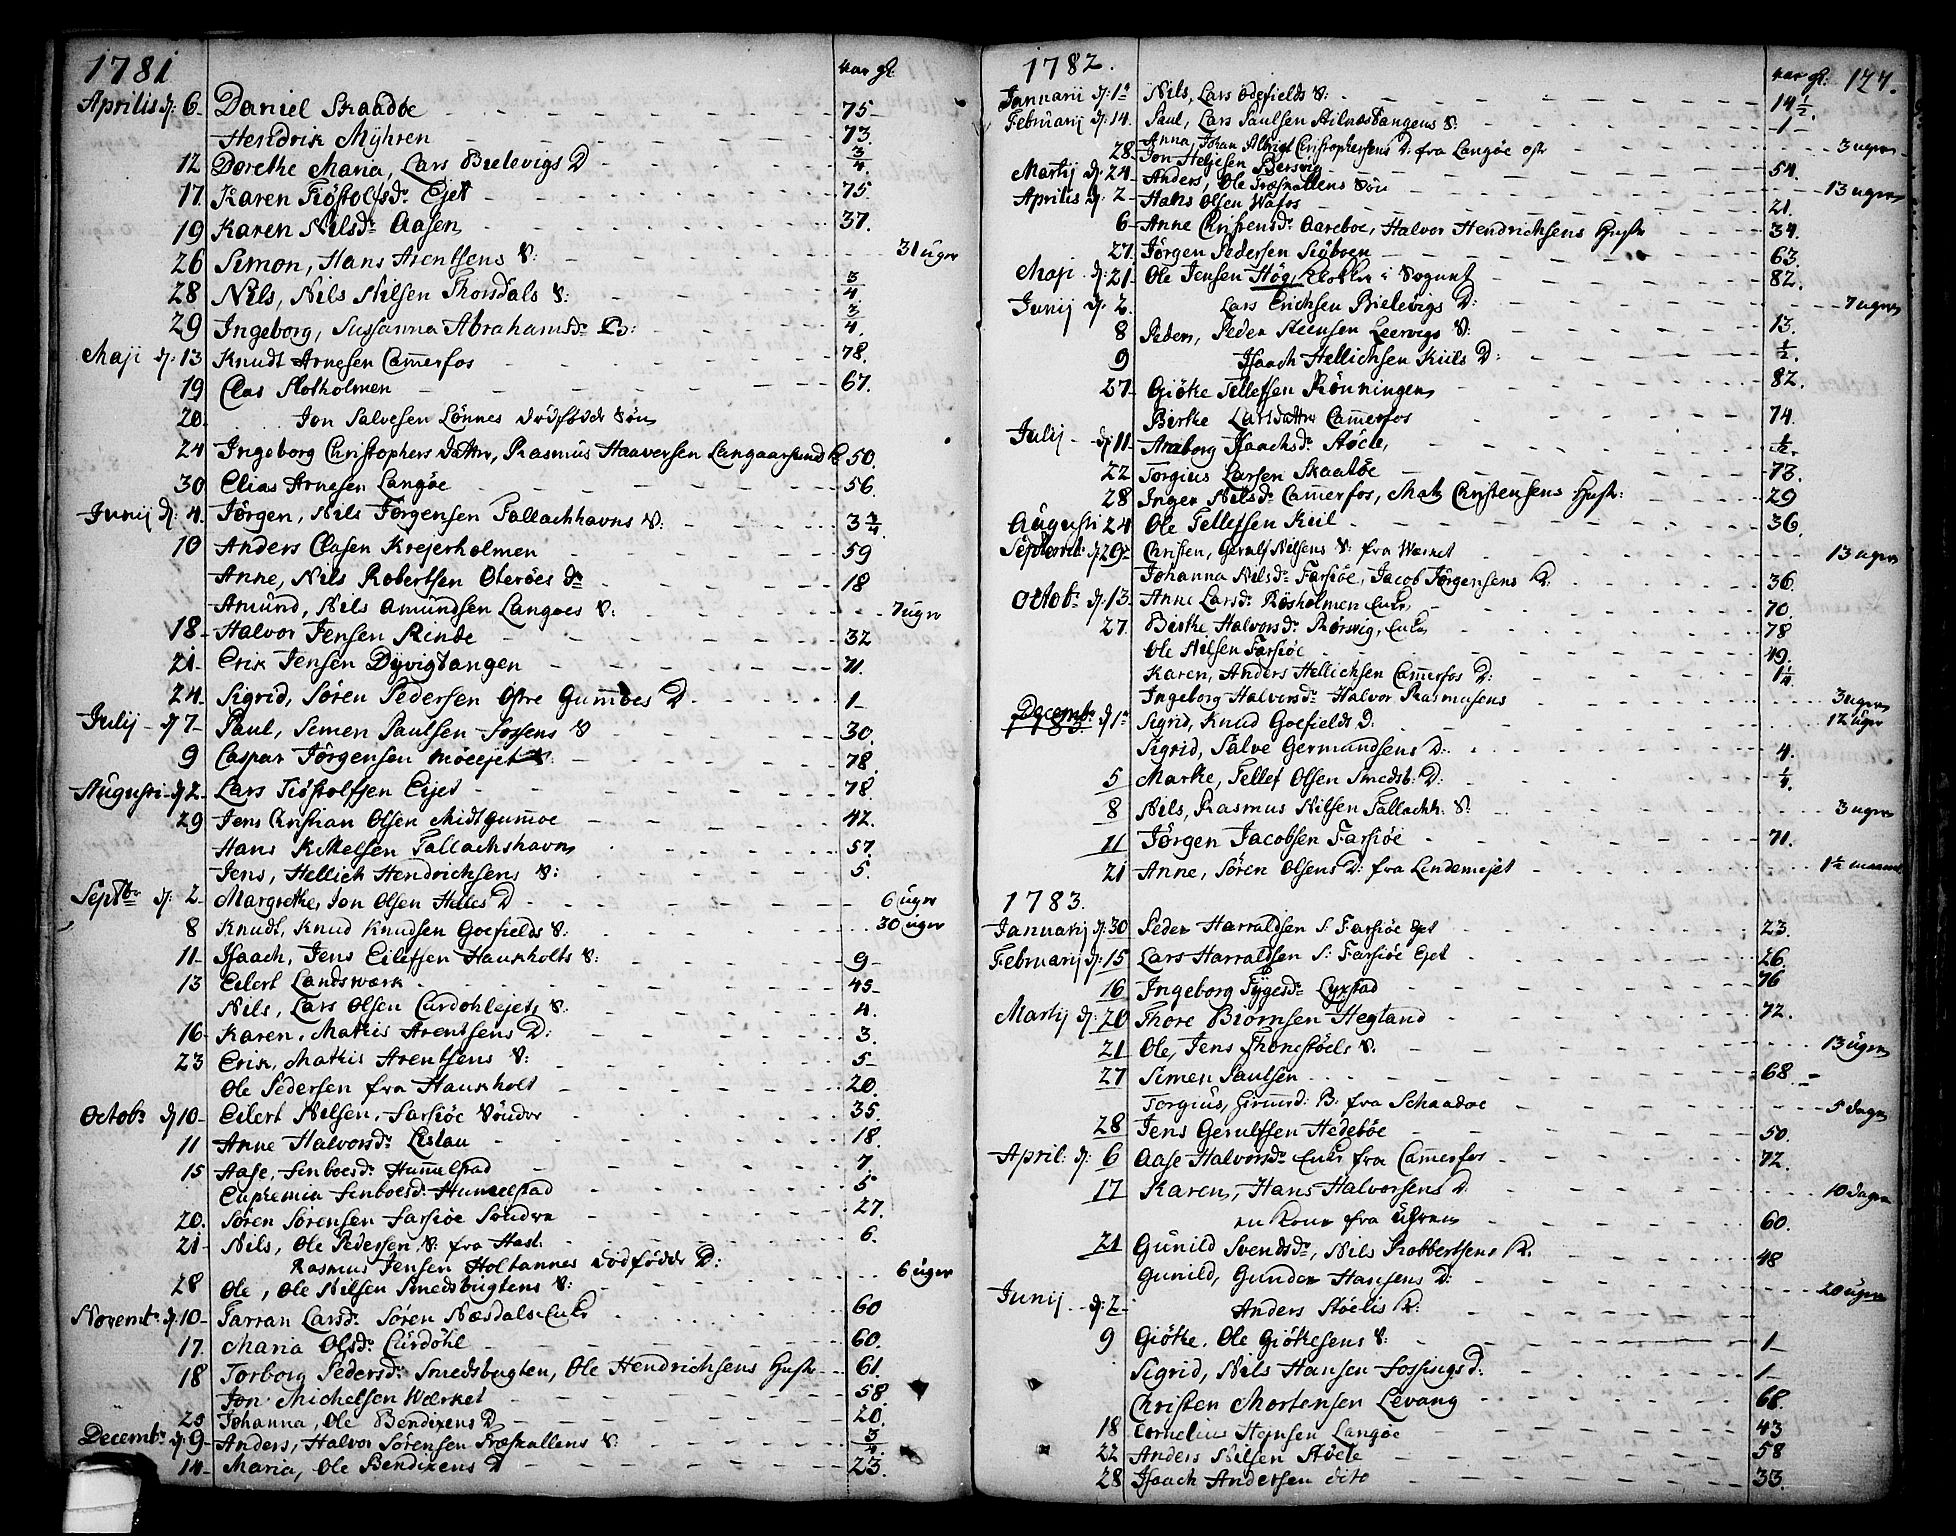 1781 var gl:
Aprilis d: 6 Daniel Skaadøe 75
Hendrik Myhren 73.
12 Dorethe Maria, Lars Bielevigs D 3/4.
17 Karen Tiøstolfsdr Ejet 75.
19 Karen Nilsdr Aasen 37.
26 Simon, Hans Arentsens S: 31 uger
28 Nils, Nils Nilsen Thorsdals S: 3/4.
29 Ingeborg, Sussanna Abrahamsdr 3/4.
Maji d: 13 Knudt Arnesen Camerfos 78.
19 Clas Slotholmen 67.
20. Jon Salvesen Lønnes dødfødde Søn
24 Ingeborg Christophersdatter, Rasmus Haaversen Langaarsund K 50.
30 Elias Arnesen Langøe 56.
Junij d: 4. Jørgen, Nils Jørgensen Tallachhavns S: 3 1/4
10 Anders Clasen Krejerholmen 59
Anne, Nils Robertsen Oterøes dr 18
Amund, Nils Amundsen Langøes S: 7 uger
18 Halvor Jensen Rinde 32
21 Erik Jensen Dyvigtangen 71.
24 Sigrid, Søren Pedersen Østre Gumøes D 1
Julij d 7 Paul, Semen Paulsen Fossens S 30.
9 Caspar Jørgensen Møeejet 78.
Augusti d 2 Lars Tiøstolfsen Eijet 78.
29 Jens Christian Olsen Midtgumøe 42.
Hans Kittelsen Tallachshavn 57.
Jens, Hellick Hendrichsens S: 5.
Septbr d: 2 Margrethe, Jon Olsen D 6 uger
8 Knudt, Knud Knudsen Goefields S: 30 uger
11 Isaach, Jens Eilefsen Haukholts S: 9
13 Eilert Landsværk 45
Nils, Lars Olsen Curdøhlejets S: 4.
16 Karen, Mathis Arentsens D: 3.
23 Erik, Mathis Arentsens S: 5
Ole Pedersen fra Haukholt 20.
Octobr d 10 Eilert Nilsen, Farsiøe Søndre 35.
11 Anne Halvorsdr Lislau 18.
15 Aase, Finboesdr Humelstad 7.
Eupremia Finboesdr Humelstad 5
20. Søren Sørensen Farsiøe Søndre 27.
21 Nils, Ole Pedersen S: fra Hast: 6.
Rasmus Jensen Holtannes dødfødde D:
28 Ole, Ole Nilsen Smedsbugtens S: 6 uger
Novembr d: 10 Tarran Larsdr Søren Næsdals Enke 60
17. Maria Olsdr Curdøhl 60.
18 Torborg Pedersdr Smedsbugten, Ole Hendrichsens Hustr 61.
Jon Michelsen Værket 58.
25 Johanna, Ole Bendixens D 20.
Decembr d 9 Anders, Halvor Sørensen Træskallens S: 3/4.
14 Maria, Ole Bendixens D 23.
1782. var gl: 127.
Januarii d: 1 Nils, Lars Ødefields S: 14 1/2.
Februarij d: 14. Paul, Lars Paulsen Stilnæstangens S: 1
Anna, Johan Albrigt Christophersens D: fra Langøe 3 uger
28 Jon Helgesen Bersvig 54.
Martij d: 24 Anders, Ole Træskallens Søn 13 uger
Aprilis d: 2 Hans Olsen Wafos 21.
6 Anne Christensdr Aareboe, Halvor Hendrichsens Hustr 34.
27 Jørgen Pedersen Siøboen 63.
Maji d: 21 Ole Jensen Høg, Klokker i Sognet 82.
Junij d: 2. Lars Erichsen Bielevigs D: 7 uger
8 Peder, Peder Steensen Leervigs S: 13.
9 Isaach Hellichsen Kiils D: 1/2.
27 Giøthe Tellefsen Rønningen 82.
Birthe Larsdatter Camerfos 74.
Julij d 11 Anborg Isaachsdr Støele, 1/2.
22 Torgius Larsen Skaatøe 73.
28 Inger Nilsdr Camerfos, Matz Christensens Hustr: 29
Augusti 24 Ole Tellefsen Kiil 36.
Septembr d 29 Christen, Gerulf Nilsens S: fra Værket 13 uger
Johanna Nilsdr Farsiøe, Jacob Jørgensens K: 36.
Octobr d: 13. Anne Larsdr Røsholmen Enke 70.
27 Birthe Halvorsdr Rørvig, Enke 78
Ole Nilsen Farsiøe 49.
Karen, Anders Hellichsen Camerfos D: 1 1/4
Ingeborg Halvorsdr Halvor Rasmusens 3 uger
Decembr d 1 Sigrid, Knud Goefields D: 12 uger
1783.
Sigrid, Salve Germundsens D: 4.
5 Marthe, Tellef Olsen Smedsb: D: 1/4.
8 Nils, Rasmus Nilsen Tallachh: S: 3 uger
11 Jørgen Jacobsen Farsiøe 71.
21 Anne, Søren Olsens D: fra Lindemejet 1 1/2 maaned
1783.
Januarij d: 30 Peder Harraldsen S: Farsiøe Ejet 23.
Februarij d: 15 Lars Harraldsen S: Farsiøe Ejet 26.
16 Ingeborg Tygesdr Lyxstad 76
Martij d: 20 Thore Biørnsen Hegland 72.
21 Ole, Jens Thorestøels S. 13 uger
27 Simen Paulsen 68.
Torgius, B: fra Schaadøe 5 dager
28 Jens Gerulfsen Hedebøe 50.
April: d: 6 Aase Halvorsdr Enke fra Camerfos 72.
17 Karen, Hans Halvorsens D. 10 dager
en Kone fra 60.
21 Gunild Svendsdr, Nils Robbertsens K: 48
Gunild, Gunder Hansens D: 20 uger
Junij d: 2 Anders Støelis K:
9 Giøthe, Ole Giøthesens S: 1
Sigrid, Nils Hansen Fossings D. 1
Christen Mortensen Levang 68.
18 Cornelius Hansen Langøe 43
22 Anders Nilsen Støele 58
28 Isaach Andersen dito 33.